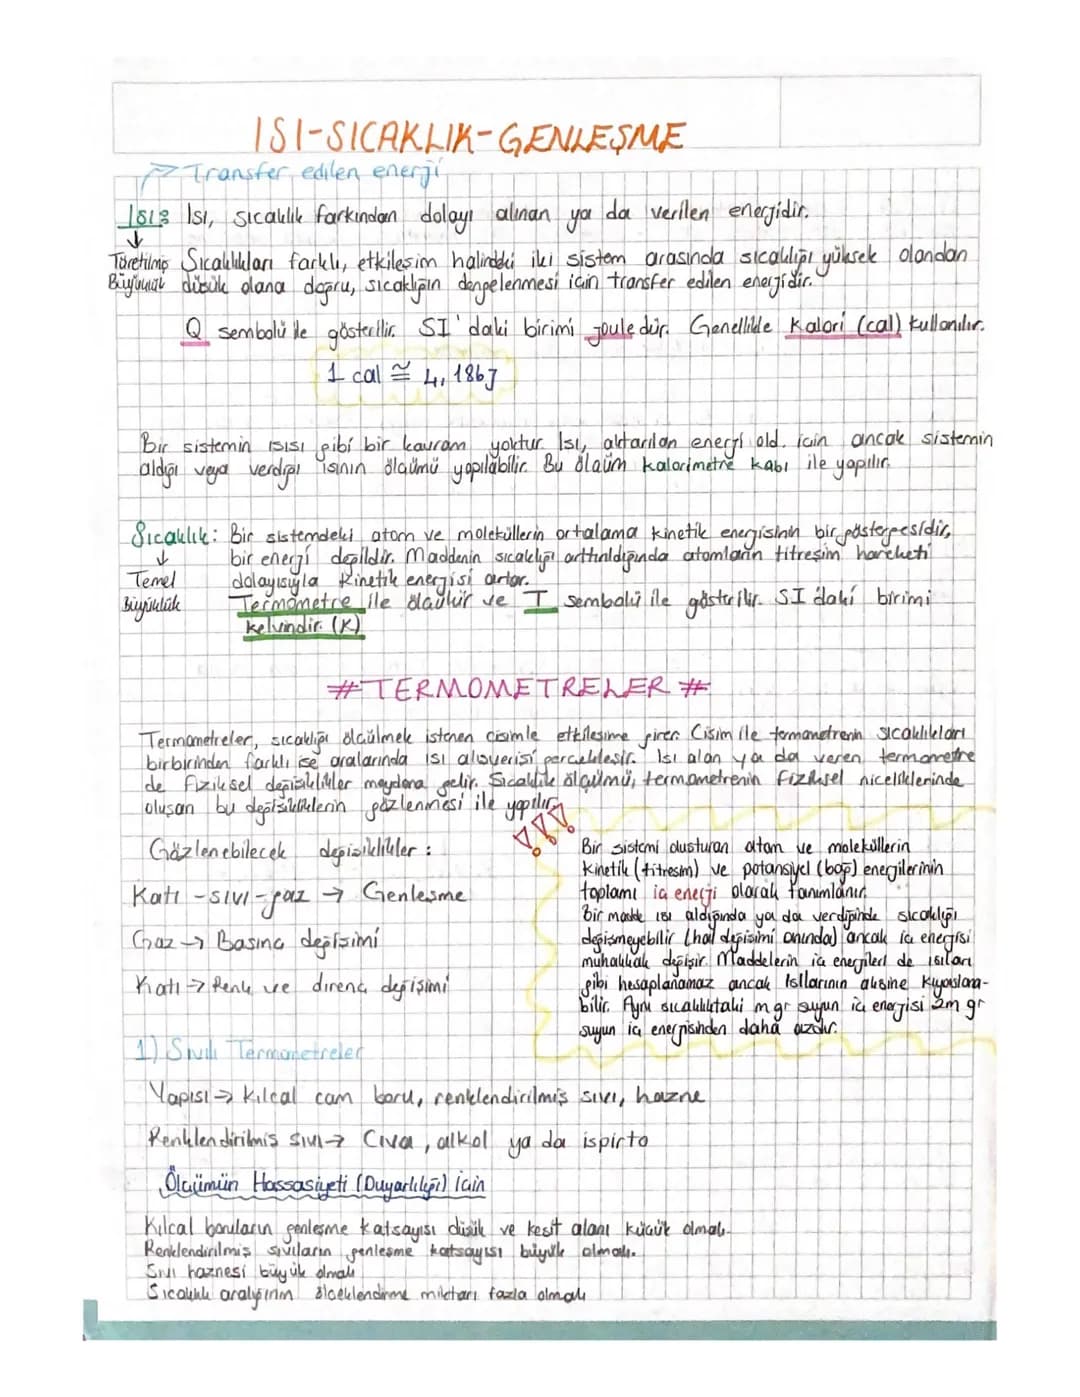 ISI-SICAKLIK-GENLEŞME
Transfer edilen enerji
Isı: Isı, sıcaklık farkından dolayı alınan ya da verilen enerjidir.
↓
Türetilmiş Büyüklük
Sıcaklıkları farklı, etkileşim halindeki iki sistem arasında sıcaklığı yüksek olandan
düşük olana doğru, sıcaklığın dengelenmesi için transfer edilen enerjidir.
Q sembolü ile gösterilir. SI'daki birimi Jouledür. Genellikle Kalori (cal) kullanılır.
1 cal ≅ 4,186J
Bir sistemin ısısı gibi bir kavram yoktur. Isı, aktarılan enerji old. için ancak sistemin
aldığı veya verdiği ısının ölçümü yapılabilir. Bu ölçüm kalorimetre kabı ile yapılır.
Sıcaklık: Bir sistemdeki atom ve moleküllerin ortalama kinetik enerjisinin bir göstergesidir,
↓
Temel
Büyüklük
bir enerji değildir. Maddenin sıcaklığı arttırıldığında atomların titreşim hareketi
dolayısıyla kinetik enerjisi artar.
Termometre ile ölçülür ve T sembolü ile gösterilir. SI'daki birimi
kelvindir. (K)
# TERMOMETRELER #
Termometreler, sıcaklığı ölçülmek istenen cisimle etkileşime girer. Cisim ile termometrenin sıcaklıkları
birbirinden farklı ise aralarında ısı alışverişi gerçekleşir. Isı alan ya da veren termometre
de fiziksel değişiklikler meydana gelir. Sıcaklık ölçümü, termometrenin fiziksel niceliklerinde
oluşan bu değişikliklerin gözlenmesi ile yapılır.
Gözlenebilecek değişiklikler :
Katı -sıvı-gaz → Genleşme
Gaz → Basınç değişimi
Katı → Renk ve direnç değişimi
!!!
Bir sistemi oluşturan atom ve moleküllerin
kinetik (titreşim) ve potansiyel (bağ) energilerinin
toplamı iç enerji olarak tanımlanır.
Bir madde ısı aldığında ya da verdiğinde sıcaklığı
değişmeyebilir (hal değişimi anında) ancak iç enerjisi
muhakkak değişir. Maddelerin iç enerjileri de ısıları
gibi hesaplanamaz ancak ısılarının aksine kıyaslana-
bilir. Aynı sıcaklıktaki m gr suyun iç enerjisi 2m gr
suyun iç enerjisinden daha azdır.
1) Sıvılı Termometreler
Yapısı → Kılcal cam boru, renklendirilmiş sıvı, hazne
Renklendirilmiş sıvı → Cıva, alkol ya da ispirto
Ölçümün Hassasiyeti (Duyarlılığı) için
Kılcal boruların genleşme katsayısı düşük ve kesit alanı küçük olmalı.
Renklendirilmiş sıvıların genleşme katsayısı büyük olmalı.
Sıvı haznesi büyük olmalı
Sıcaklık aralığının ölçeklendirme miktarı fazla olmalı